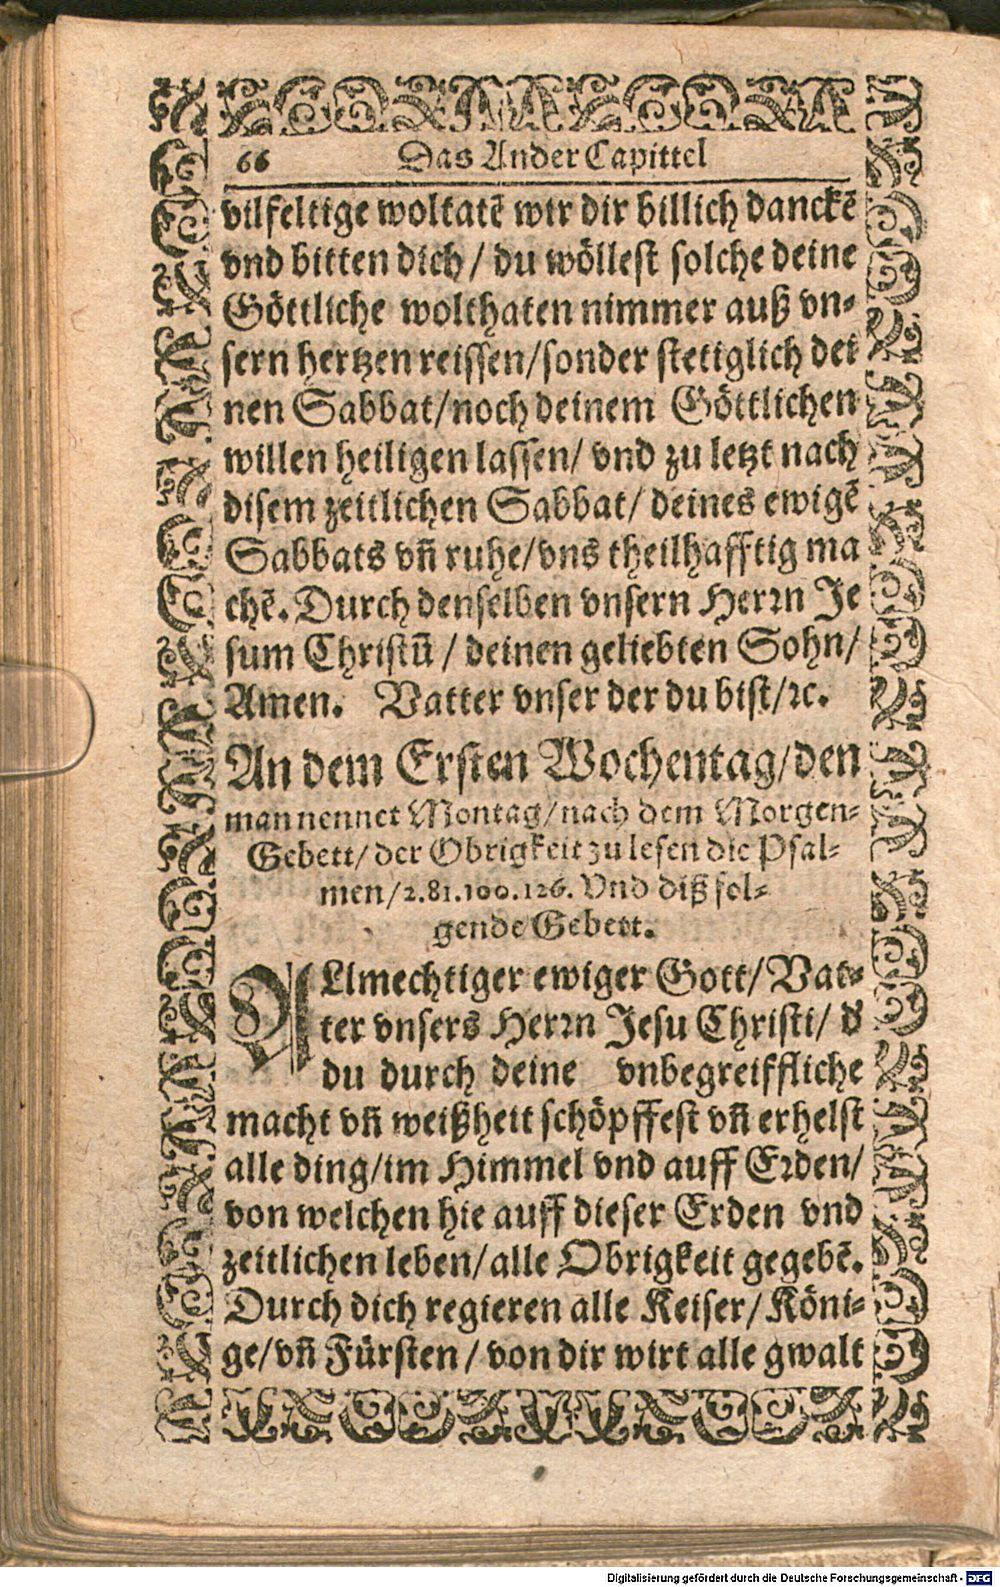 66 Das Ander Capittel
vilfeltige woltatẽ wir dir billich danckẽ
vnd bitten dich / du wöllest solche deine
Göttliche wolthaten nimmer auß vn⸗
sern hertzen reissen/sonder stetiglich dei
nen Sabbat/noch deinem Göttlichen
willen heiligen lassen/ vnd zu letzt nach
disem zeitlichen Sabbat/ deines ewigẽ
Sabbats vñ ruhe/vns theilhafftig ma
chẽ. Durch denselben vnsern Herꝛn Je
sum Christũ / deinen geliebten Sohn/
Amen. Vatter vnser der du bist/ꝛc.
An dem Ersten Wochentag/den
man nennet Montag/nach dem Morgen⸗
Gebett/der Obrigkeit zu lesen die Psal⸗
men/2.81.100.126. Vnd diß fol⸗
gende Gebett.
ALlmechtiger ewiger Gott/Vat⸗
ter vnsers Herꝛn Jesu Christi/ đ
du durch deine vnbegreiffliche
macht vñ weißheit schöpffest vñ erhelst
alle ding/im Himmel vnd auff Eꝛden/
von welchen hie auff dieser Erden vnd
zeitlichen leben/alle Obrigkeit gegebẽ.
Durch dich regieren alle Keiser/Köni⸗
ge/vñ Fürsten/von dir wirt alle gwalt
Digitalisierung gefördert durch die Deutsche Forschungsgemeinschaft - DFG